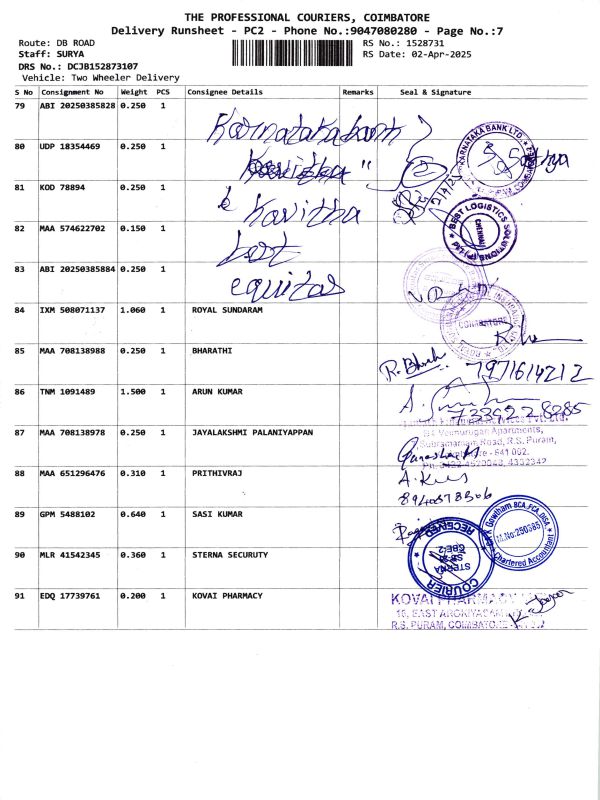 THE PROFESSIONAL COURIERS, COIMBATORE
Delivery Runsheet - PC2 - Phone No.:9047080280 - Page No.:7
Route: DB ROAD RS No.: 1528731
Staff: SURYA RS Date: 02-Apr-2025
DRS No.: DCJB152873107
Vehicle: Two Wheeler Delivery
S No Consignment No Weight PCS Consignee Details Remarks Seal & Signature
79 ABI 20250385828 0.250 1
Karnataka bank
80 UDP 18354469 0.250 1
KARNATAKA BANK LTD.
81 KOD 78894 0.250 1
Kavitha
82 MAA 574622702 0.150 1
BEST LOGISTICS SOLUTIONS
CHENNAI
83 ABI 20250385884 0.250 1
equitas
84 IXM 508071137 1.060 1 ROYAL SUNDARAM
COIMBATORE
85 MAA 708138988 0.250 1 BHARATHI
7971614212
86 TNM 1091489 1.500 1 ARUN KUMAR
87 MAA 708138978 0.250 1 JAYALAKSHMI PALANIYAPPAN
Apartments,
Road, R.S. Puram,
88 MAA 651296476 0.310 1 PRITHIVRAJ
89 GPM 5488102 0.640 1 SASI KUMAR
Gowtham BCA,FCA,DISA
M.No:250385
Chartered Accountant
90 MLR 41542345 0.360 1 STERNA SECURUTY
RECEIVED
STERNA
CBE-2
COURIER
91 EDQ 17739761 0.200 1 KOVAI PHARMACY
KOVAI PHARMACY
R.S. PURAM, COIMBATORE